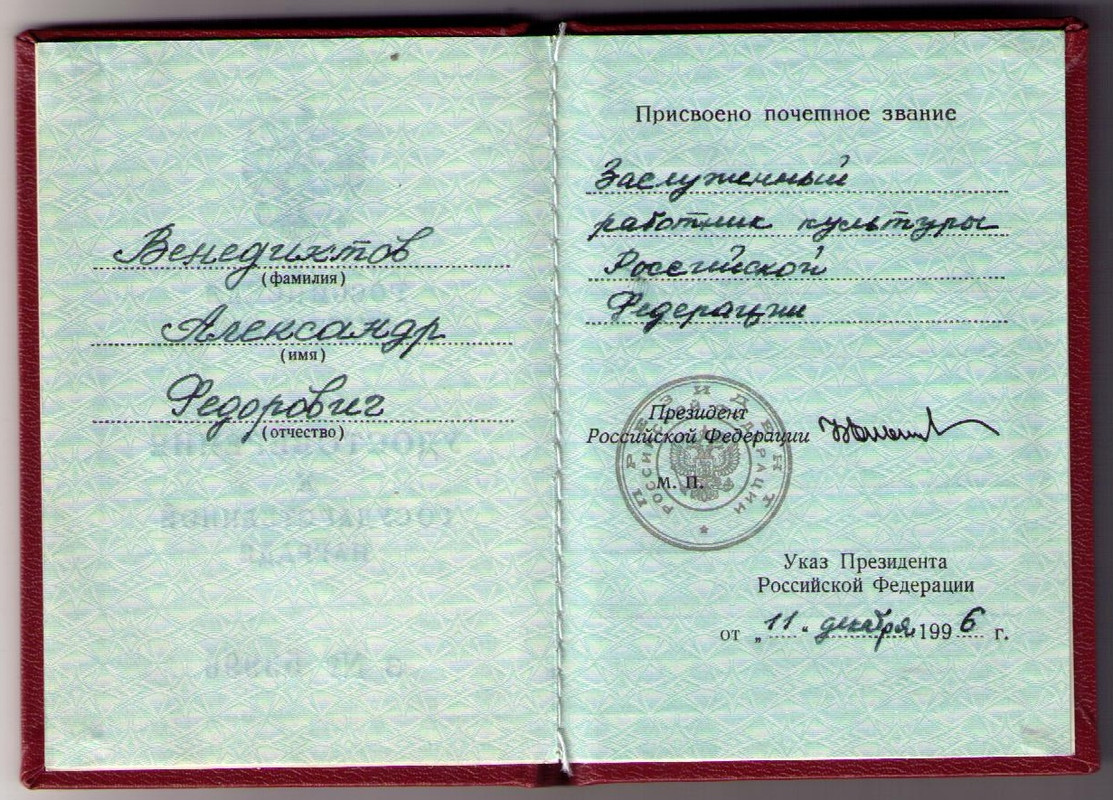 Венедиктов
(фамилия)
Александр
(имя)
Федорович
(отчество)
Присвоено почетное звание
Заслуженный
работник культуры
Российской
Федерации
Президент
Российской Федерации
М. П.
ПРЕЗИДЕНТ
РОССИЙСКОЙ ФЕДЕРАЦИИ
Указ Президента
Российской Федерации
от „11“ декабря 1996 г.